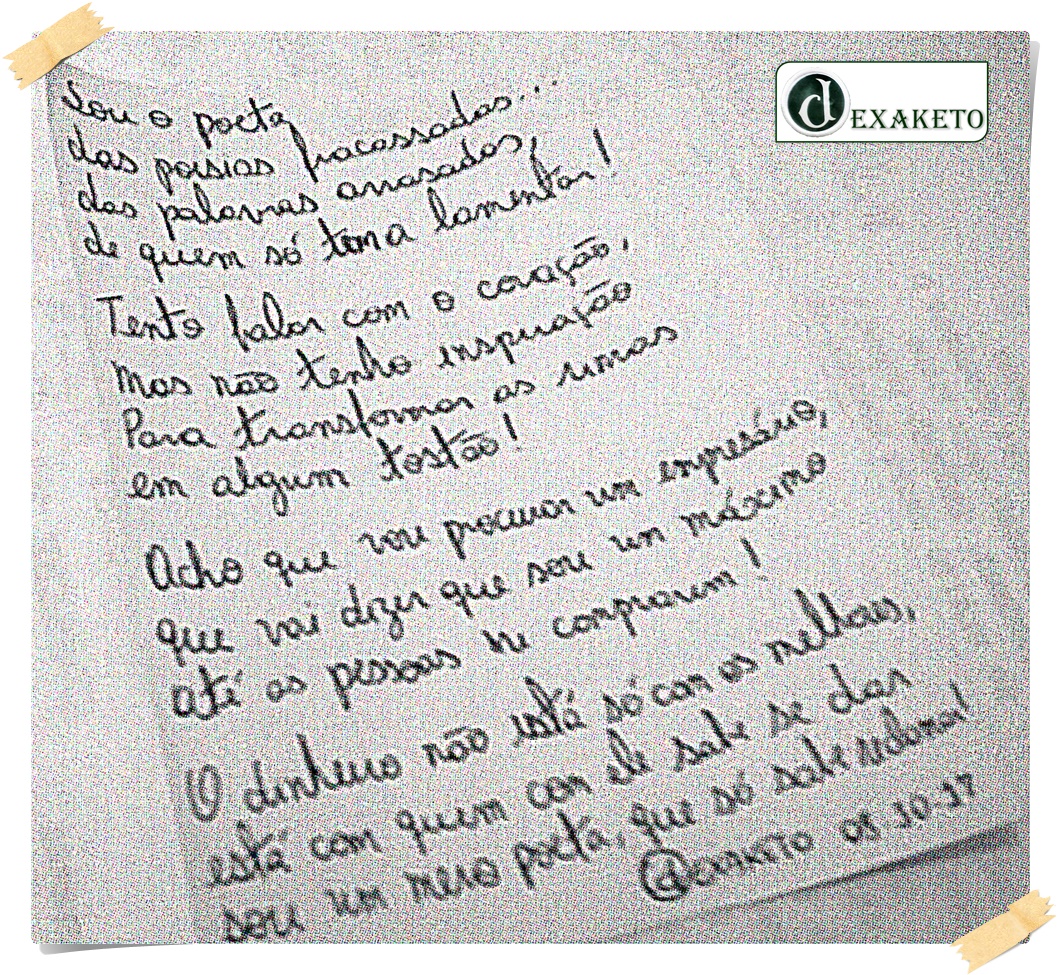 DEXAKETO
Sou o poeta
das poesias fracassadas...
das palavras arrasadas,
de quem só tem a lamentar!
Tento falar com o coração,
mas não tenho inspiração
Para transformar as rimas
em algum tostão!
Acho que vou procurar um empresário,
que vai dizer que sou um máximo
até as pessoas me comprarem!
O dinheiro não está só com os melhores,
está com quem com ele sabe se dar
sou um mero poeta, que só sabe
@DEXAKETO 10-17